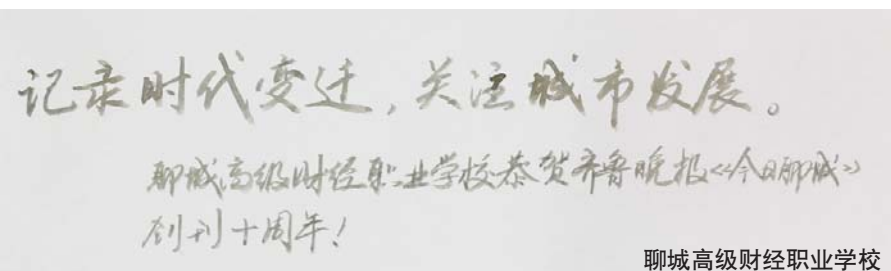 记录时代变迁,关注城市发展。
聊城高级财经职业学校恭贺齐鲁晚报《今日聊城》
创刊十周年!
聊城高级财经职业学校